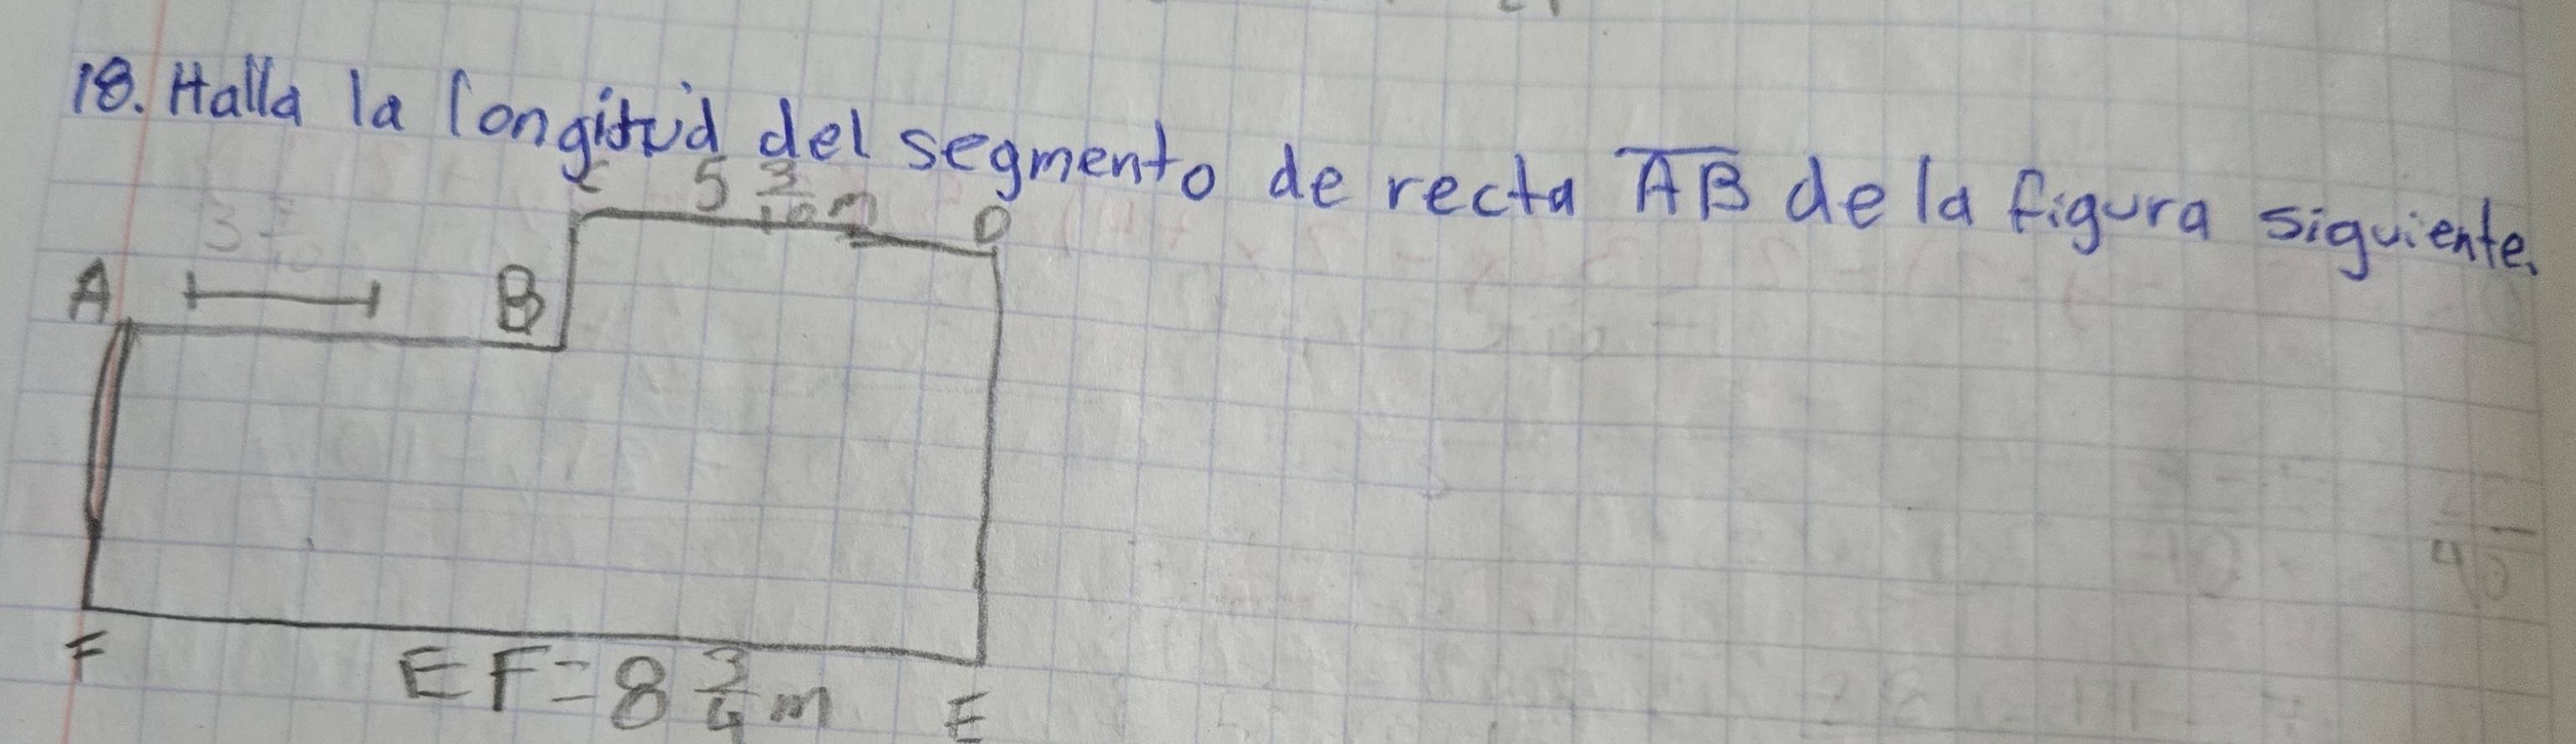 18. Halla la longitud del segmento de recta AB de la figura siguiente.
C 5 3/10 m D
A B
F EF=8 3/4 m E